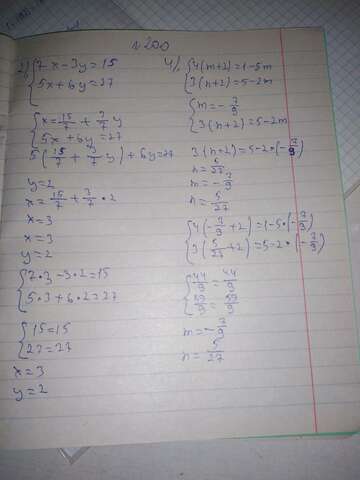 № 200
2) { 7x-3y=15
5x+6y=27
{ x=15/7+3/7y
5x+6y=27
5(15/7+3/7y)+6y=27
y=2
x=15/7+3/7•2
x=3
x=3
y=2
{ 7•3-3•2=15
5•3+6•2=27
{ 15=15
27=27
x=3
y=2
4) { 4(m+2)=1-5m
3(n+2)=5-2m
{ m=-7/9
3(n+2)=5-2m
3(n+2)=5-2•(-7/9)
n=5/27
m=-7/9
n=5/27
{ 4(-7/9+2)=1-5•(-7/9)
3(5/27+2)=5-2•(-7/9)
{ 44/9=44/9
59/9=59/9
m=-7/9
n=5/27